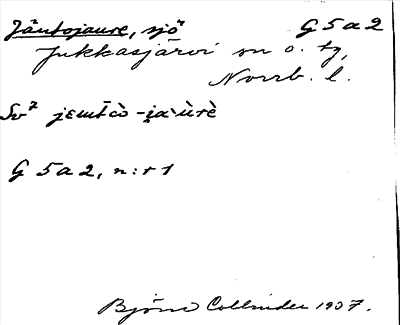 Jäutojaure, sjö G 5 a 2
Jukkasjärvi sn o. tg,
Norrb. l.
Sv² jɛu̯tcò -i̯a`ùrè
G 5 a 2, n:r 1
Björn Collinder 1937.